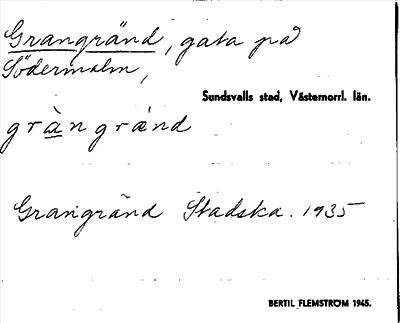 Grangränd, gata på
Södermalm,
Sundsvalls stad, Västernorrl. län.
gràngränd
Grangränd Stadska. 1935
BERTIL FLEMSTRÖM 1945.